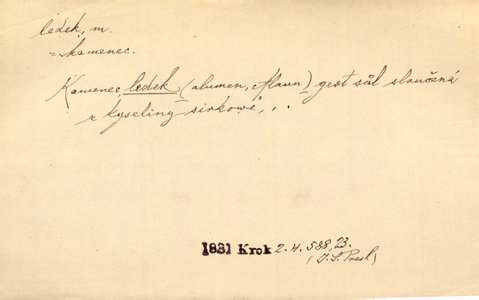 ledek, m.
= kamenec.
Kamenec, ledek (alumen, Alaun) gest sůl sloučená
z kyseliny sirkowé, . .
1831 Krok 2. 4. 588, 23.
(J. S. Presl)